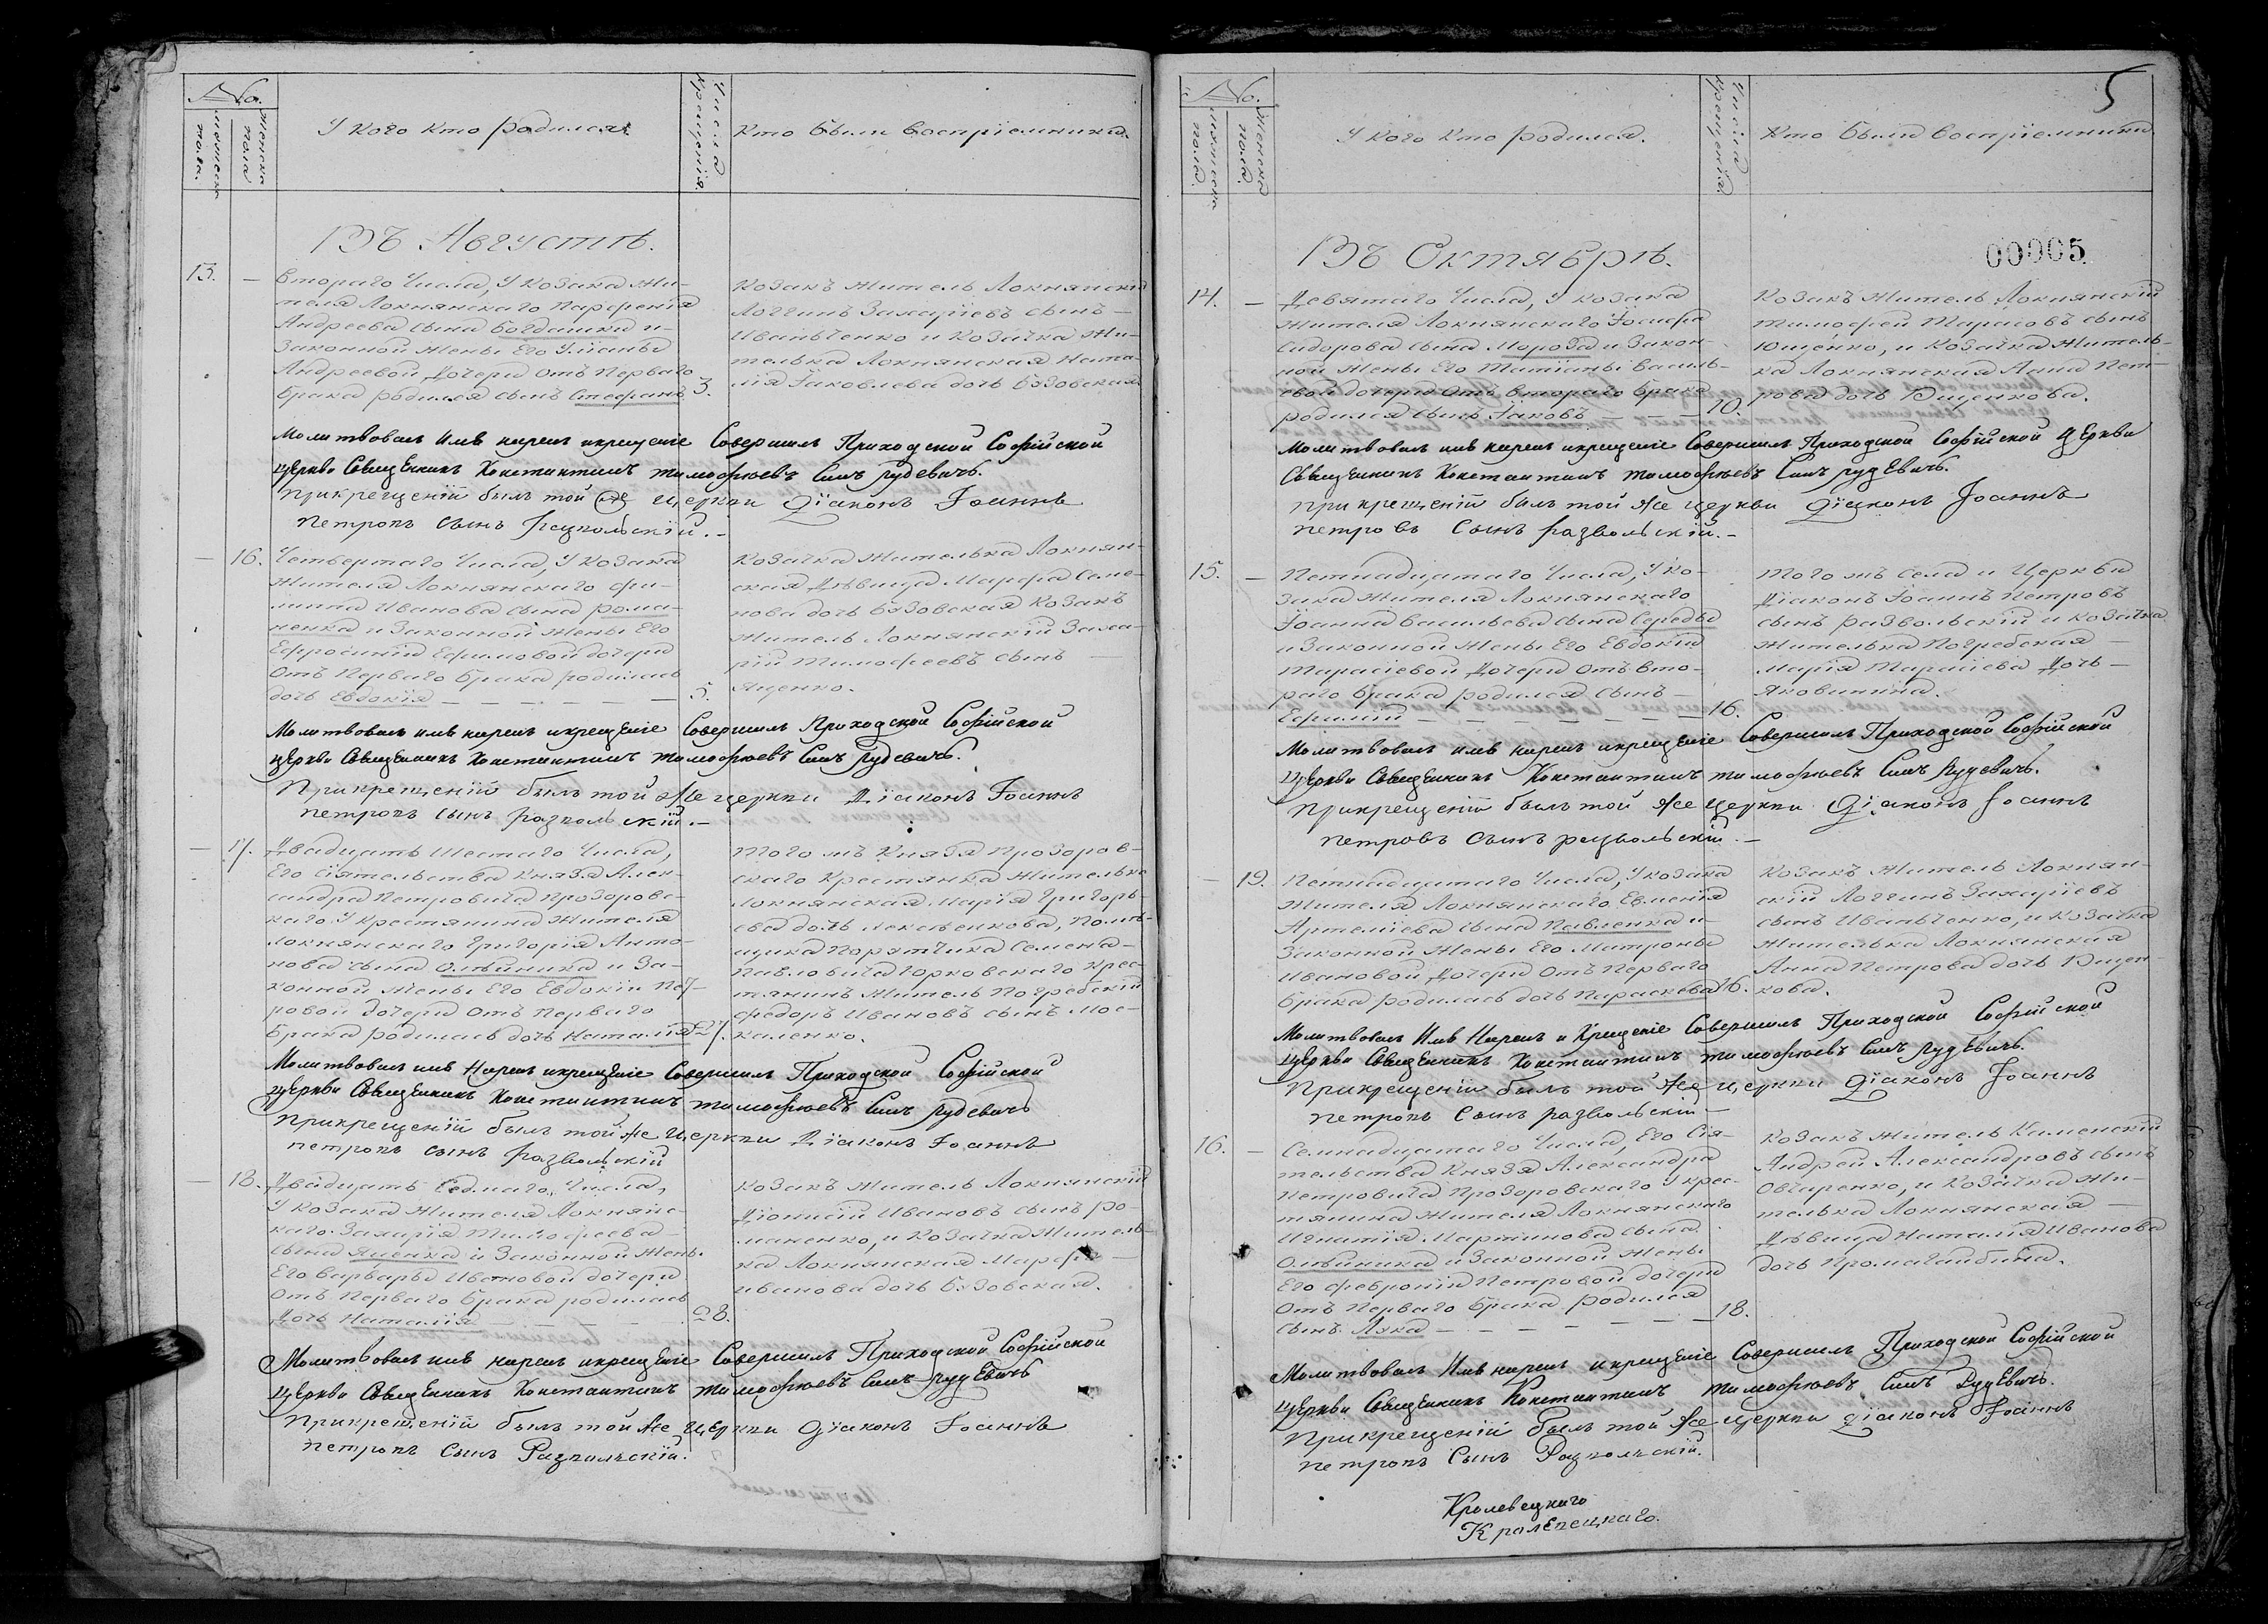 №
Женска пола
мужеска пола.
У кого кто родился
Числа крещенія.
Кто были воспріемники.
Въ Августѣ.
13. —
Втораго Числа, У Козака Жи-
теля Локнянскаго Парфенія
Андреева сына Богдашка и
Законной жены Его Уліаны
Андреевой Дочери Отъ Перваго
брака родился сынъ Стефанъ 3.
Козакъ житель Локнянскій
Логгинъ Захаріевъ сынъ —
Иваньченко и Козачка Жи-
телька Локнянская Ната-
лія Іаковлева дочь Бзовская
Молитвовалъ имѣ нареп икрещеніе Совершилъ Приходской Софійской
церкви Священникъ Константинъ тимофѣевъ Синъ рудевичъ.
прикрещеніи былъ той же церкви Діаконъ Іоаннъ
петровъ сынъ развольскій. —
— 16.
Четвертаго Числа, У Козака
Жителя Локнянскаго Фи-
липа Иванова сына Рома-
ненка и Законной жены Его
Ефросиніи Ефимовой дочери
Отъ Перваго брака родилась
дочь Евдокія — 5.
Козачка жителька Локнян-
ская Дѣвица Марфа Семе-
нова дочь Бзовская Козакъ
Житель Локнянскій Заха-
рій Тимофеевъ сынъ —
Яценко.
Молитвовалъ имѣ нареп икрещеніе Совершилъ Приходской Софійской
церкви Священникъ Константинъ тимофѣевъ Синъ рудевичъ.
Прикрещеніи былъ той же церкви Діаконъ Іоаннъ
петровъ сынъ развольскій. —
— 17.
Двадцать Шестаго Числа,
Его Сіятельства Князя Алек-
сандра Петровича Прозоровс-
каго У Крестянина Жителя
Локнянскаго Григорія Анто-
нова сына Олѣйника и За-
конной жены Его Евдокіи Пет-
ровой дочери Отъ Перваго
брака родилась дочь Наталія 27.
Того жъ Князя Прозоров-
скаго Крестянка Жителька
Локнянская Марія Григорь-
ева дочь Помѣ-
щика Порутчика Семена —
Павловича Горковскаго Крес-
тянинъ Житель Погребскій
Федоръ Ивановъ сынъ Мос-
каленко.
Молитвовалъ имѣ Нареп икрещеніе Совершилъ Приходской Софійской
церкви Священникъ Константинъ тимофѣевъ Синъ рудевичъ
Прикрещеніи былъ той же церкви Діаконъ Іоаннъ
петровъ сынъ развольскій
— 18.
Двадцать Седмаго Числа,
У Козака Жителя Локнянс-
каго Захарія Тимофеева —
сына Яценка и Законной Жены
Его Варвары Ивановой дочери
Отъ Перваго брака родилась
Дочь Наталія — 28.
Козакъ Житель Локнянскій
Діонисій Ивановъ сынъ Ро-
маненко, и Козачка Житель-
ка Локнянская Марфа —
иванова дочь Бзовская.
Молитвовалъ имѣ нареп икрещеніе Совершилъ Приходской Софійской
церкви Священникъ Константинъ тимофѣевъ Синъ рудевичъ
Прикрещеніи былъ той же церкви Діаконъ Іоаннъ
петровъ Сынъ Развольскій.
5
№
мужеска пола.
Женска пола.
У кого кто родился.
Числа крещенія.
Кто были воспріемники
00005.
Въ Октябрѣ.
14. —
Девятаго Числа, У козака
Жителя Локнянскаго Іосифа
Сидорова сына Мороза и Закон-
ной жены Его Татіаны Василь-
евой дочери Отъ Втораго брака
родился сынъ Іаковъ — — — 10.
Козакъ Житель Локнянскій
Тимофей Тарасовъ сынъ
Ющенко, и Козачка Житель-
ка Локнянская Анна Пет-
рова дочь Виценкова.
Молитвовалъ имѣ нареп икрещеніе Совершилъ Приходской Софійской Церкви
Священникъ Константинъ тимофѣевъ Синъ рудевичъ.
при крещеніи былъ той же церкви Діаконъ Іоаннъ
петровъ Сынъ развольскій. —
15. —
Петнадцатаго Числа, У Ко-
зака Жителя Локнянскаго
Іоанна Васильева сына Середы
и Законной Жены Его Евдокіи
Тарасіевой Дочери Отъ Вто-
раго брака родился сынъ —
Ефимій — 16.
Того жъ села и Церкви
Діаконъ Іоаннъ Петровъ
сынъ Развольскій и козачка
жителька Погребская —
Марія Тарасіева Дочь —
Яковинина.
Молитвовалъ имѣ нареп икрещеніе Совершилъ Приходской Софійской
церкви Священникъ Константинъ тимофѣевъ Синъ рудевичъ.
прикрещеніи былъ той же церкви Діаконъ Іоаннъ
петровъ Сынъ развольскій. —
— 19.
Петнадцатаго Числа, У козака
Жителя Локнянскаго Евменія
Артеміева сына Павленка и
Законной Жены Его Матроны
Ивановой Дочери Отъ Перваго
брака родилась дочь Параскева 16.
Козакъ Житель Локнян-
скій Логгинъ Захаріевъ
сынъ Иваньченко, и Козачка
Жителька Локнянская
Анна Петрова дочь Вицен-
кова.
Молитвовалъ Имѣ Нареп и Крещеніе Совершилъ Приходской Софійской
церкви Священникъ Константинъ тимофѣевъ Синъ рудевичъ.
Прикрещеніи былъ той же церкви Діаконъ Іоаннъ
петровъ Сынъ развольскій —
16. —
Семнадцатаго Числа, Его Сія-
тельства Князя Александра
Петровича Прозоровскаго У крес-
тянина Жителя Локнянскаго
Игнатія Мартинова сына
Олѣйника и Законной Жены
Его Февроніи Петровой дочери
Отъ Перваго брака родился
сынъ Лука — 18.
Козакъ Житель Каменскій
Андрей Александровъ сынъ
Овчаренко, и Козачка Жи-
телька Локнянская —
Дѣвица Наталія Иванова
дочь
Молитвовалъ Имѣ нареп икрещеніе Совершилъ Приходской Софійской
церкви Священникъ Константинъ тимофѣевъ Синъ Рудевичъ.
Прикрещеніи былъ той же церкви діаконъ Іоаннъ
петровъ Сынъ Развольскій.
Кролевецкаго
Кролевецкаго.